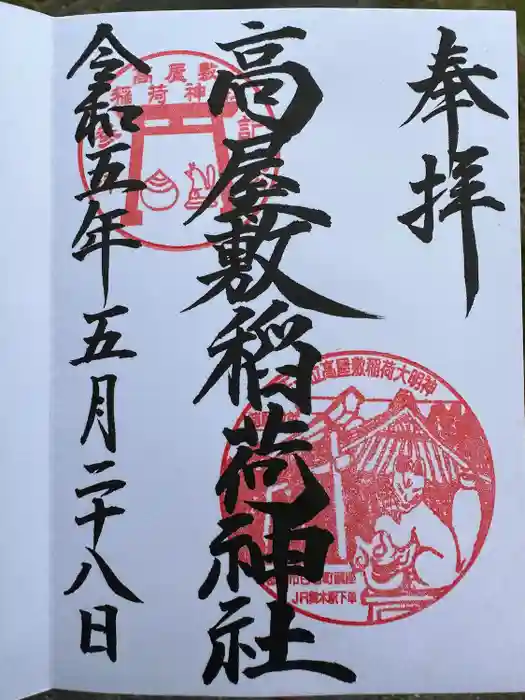 奉拝
高屋敷稲荷神社
令和五年五月二十八日
高屋敷
稲荷神社
参
記
位高屋敷稲荷大明神
町鎮座
JR舞木駅下車